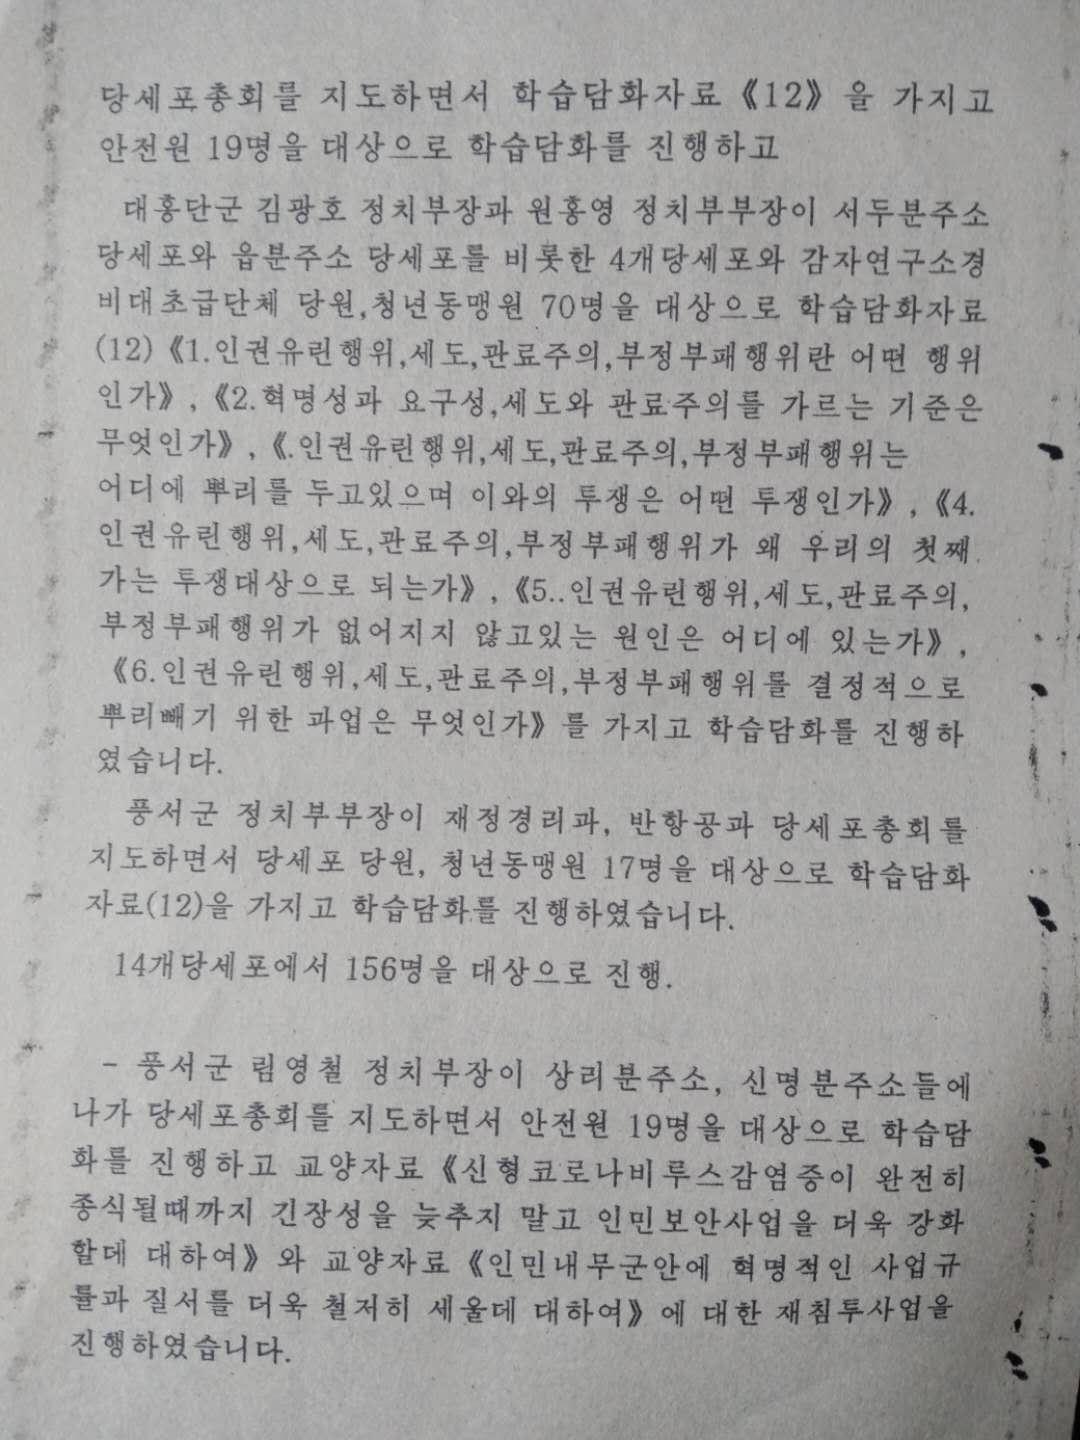 당세포총회를 지도하면서 학습담화자료《12》을 가지고
안전원 19명을 대상으로 학습담화를 진행하고
대홍단군 김광호 정치부장과 원홍영 정치부부장이 서두분주소
당세포와 읍분주소 당세포를 비롯한 4개당세포와 감자연구소경
비대초급단체 당원,청년동맹원 70명을 대상으로 학습담화자료
(12)《1.인권유린행위,세도,관료주의,부정부패행위란 어떤 행위
인가》,《2.혁명성과 요구성,세도와 관료주의를 가르는 기준은
무엇인가》,《.인권유린행위,세도,관료주의,부정부패행위는
어디에 뿌리를 두고있으며 이와의 투쟁은 어떤 투쟁인가》,《4.
인권유린행위,세도,관료주의,부정부패행위가 왜 우리의 첫째
가는 투쟁대상으로 되는가》,《5..인권유린행위,세도,관료주의,
부정부패행위가 없어지지 않고있는 원인은 어디에 있는가》,
《6.인권유린행위,세도,관료주의,부정부패행위를 결정적으로
뿌리빼기 위한 과업은 무엇인가》를 가지고 학습담화를 진행하
였습니다.
풍서군 정치부부장이 재정경리과, 반항공과 당세포총회를
지도하면서 당세포 당원, 청년동맹원 17명을 대상으로 학습담화
자료(12)을 가지고 학습담화를 진행하였습니다.
14개당세포에서 156명을 대상으로 진행.
- 풍서군 림영철 정치부장이 상리분주소, 신명분주소들에
나가 당세포총회를 지도하면서 안전원 19명을 대상으로 학습담
화를 진행하고 교양자료《신형코로나비루스감염증이 완전히
종식될때까지 긴장성을 늦추지 말고 인민보안사업을 더욱 강화
할데 대하여》와 교양자료《인민내무군안에 혁명적인 사업규
률과 질서를 더욱 철저히 세울데 대하여》에 대한 재침투사업을
진행하였습니다.